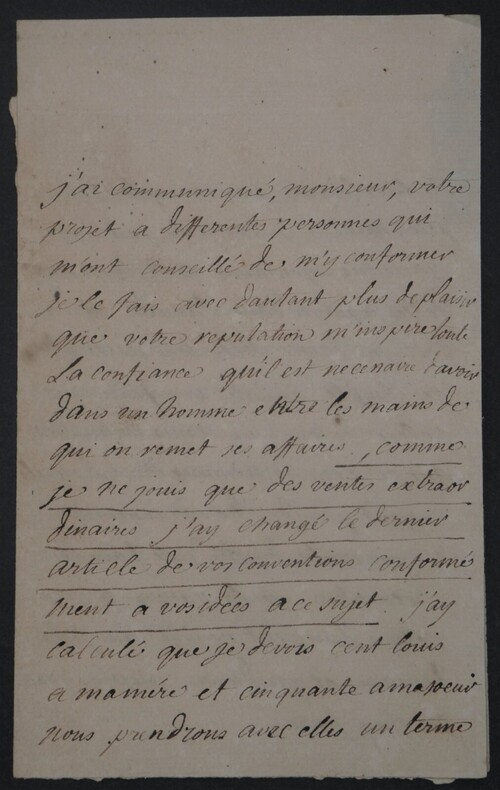 j'ai communiqué, monsieur, votre
projet a differentes personnes qui
m'ont conseillé de m'y conformer
je le fais avec dautant plus de plaisir
que votre reputation m'inspire toute
La confiance qu'il est necessaire d'avoir
dans un homme entre les mains de
qui on remet ses affaires, comme
je ne jouis que des ventes extraor
dinaires j'ay changé le dernier
article de vos conventions conformé
ment a vos idées a ce sujet. j'ay
calculé que je devois cent louis
a mamére et cinquante a masoeur
nous prendrons avec elles un terme